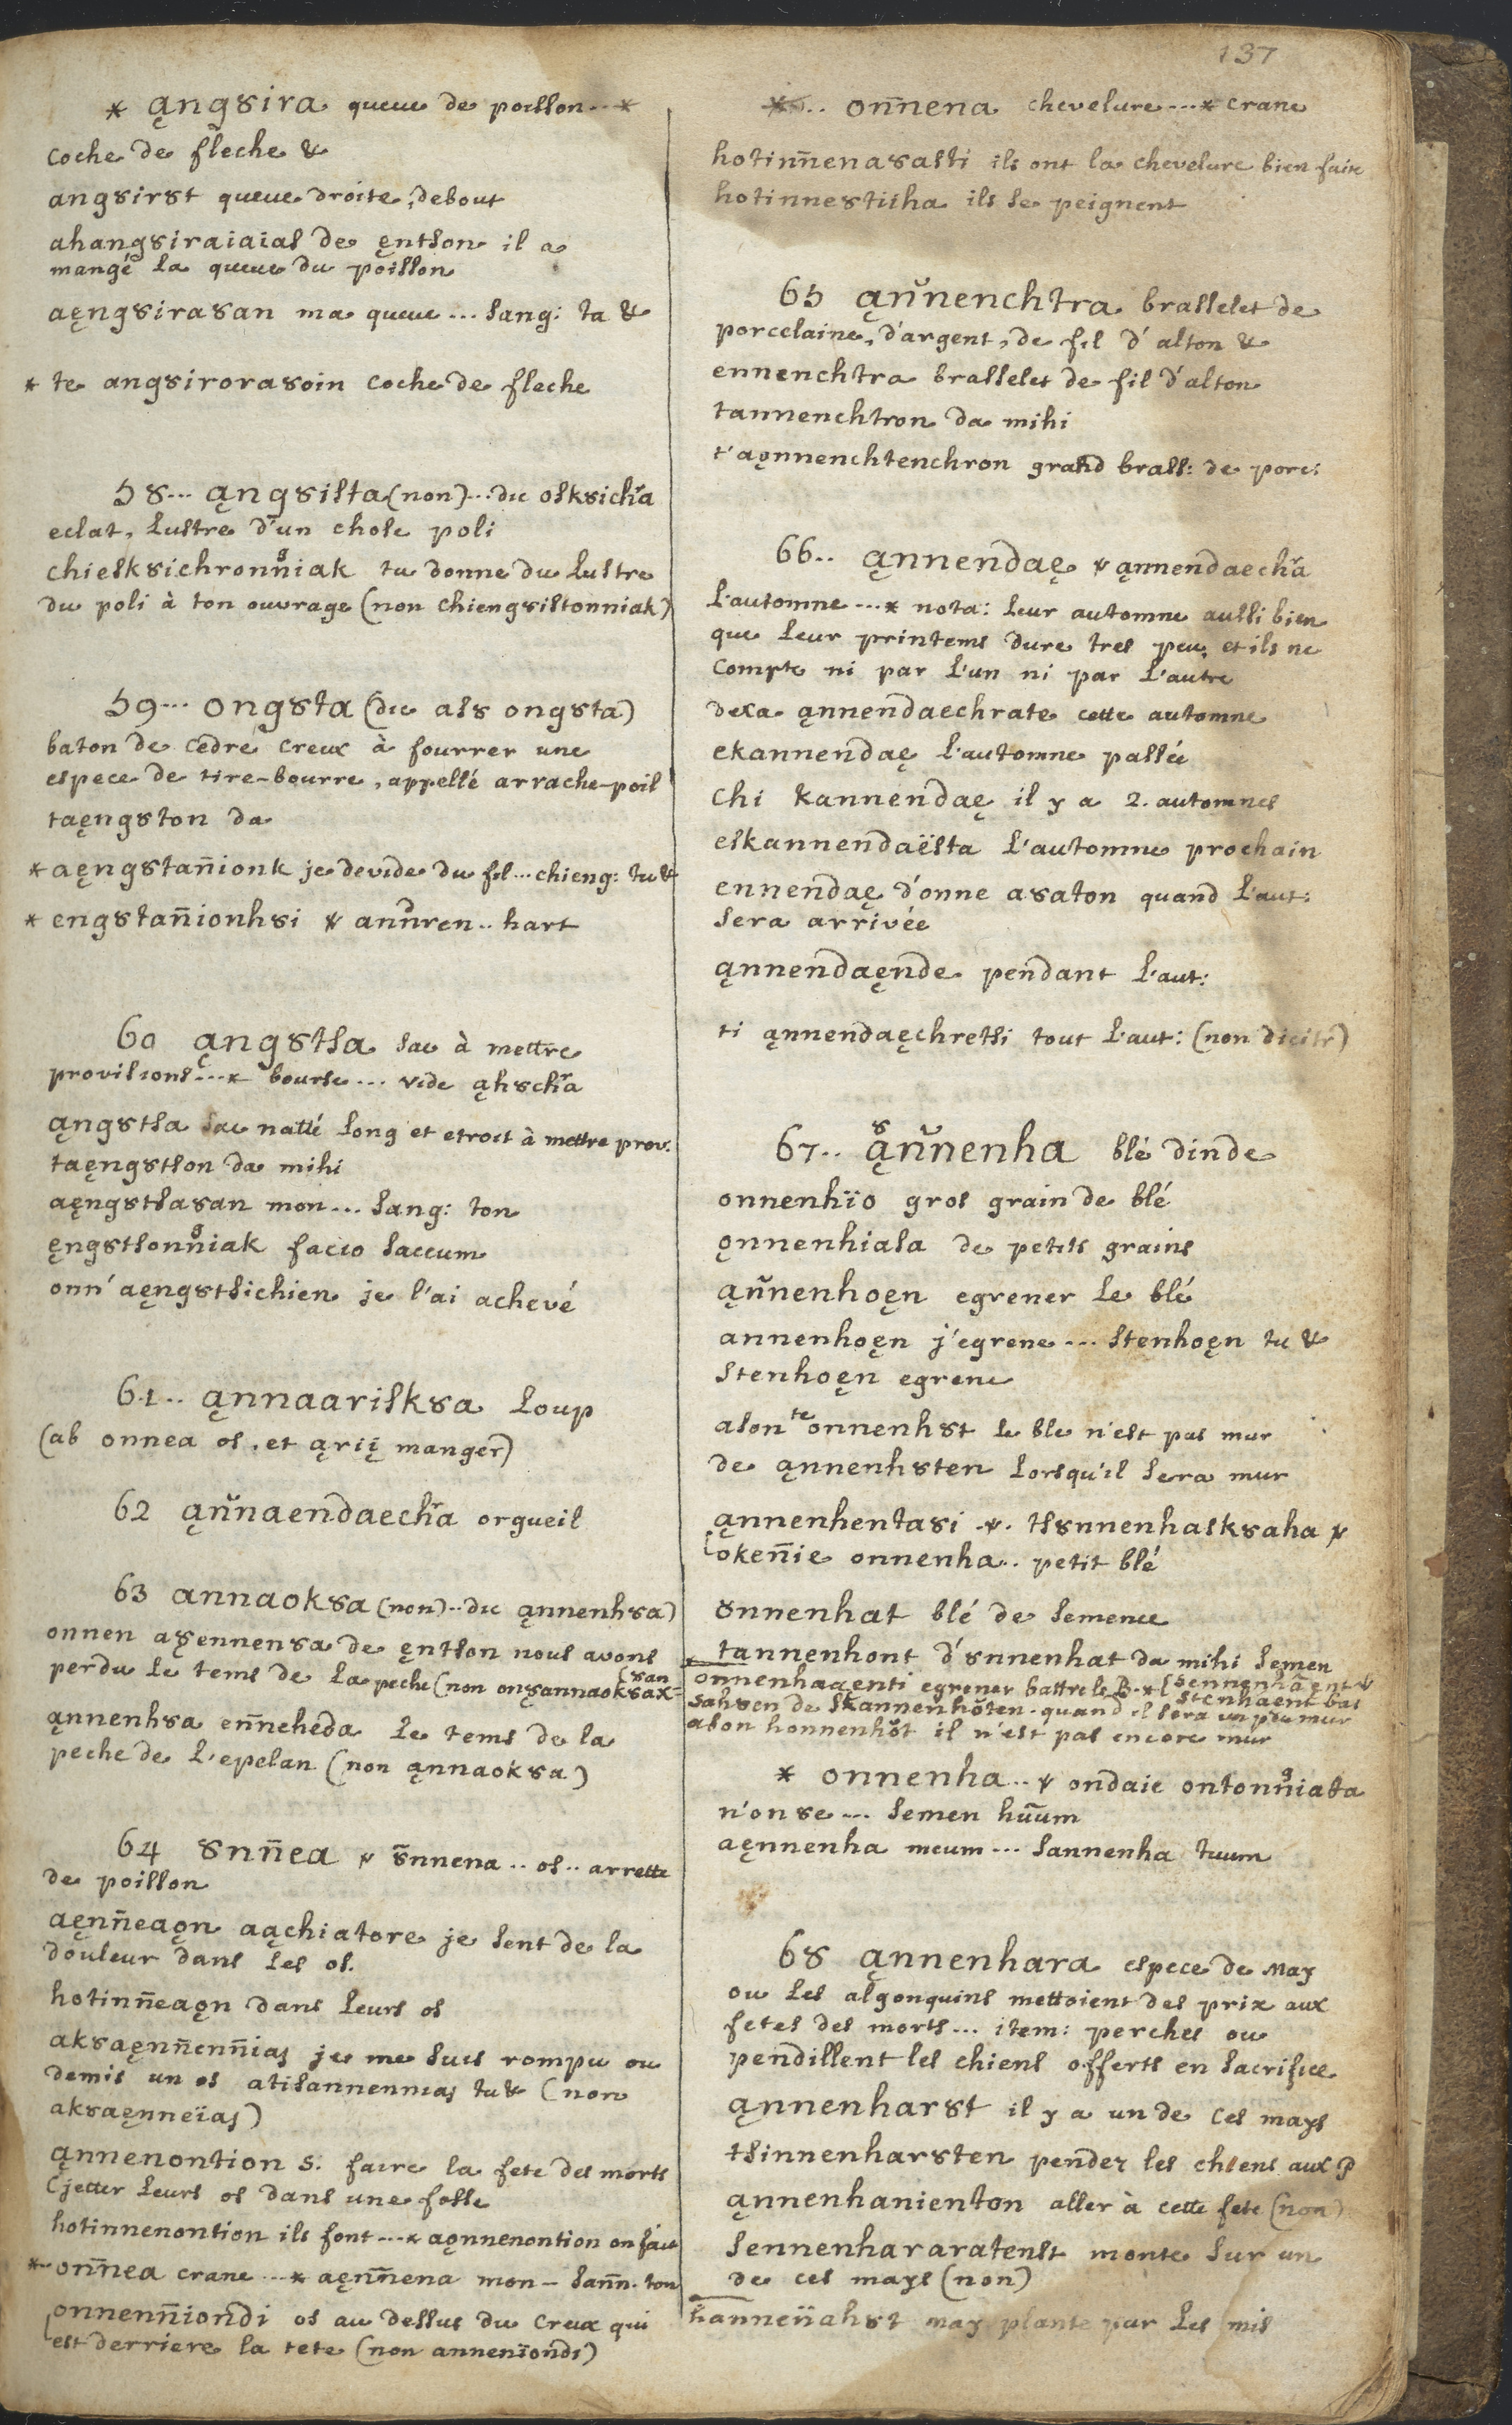 137
* ąngȣira queue de poisson...*
coche de fleche &
angȣirȣt queue droite, debout
ahangȣiraiaias de ęntson il a
mangé la queue du poisson
aęngȣiraȣan ma queue ... sang: ta &
* te angȣiroraȣoin coche de fleche
58... ąngȣista (non)... dic oskȣichra
eclat, lustre d'un chose poli
chieskȣichronnȣiak tu donne du lustre
du poli à ton ouvrage (non chiengȣistonniak)
59... ongȣta (dic alȣ ongȣta)
baton de cedre creux à fourrer une
espece de tire-bourre, appellé arrache-poil
taęngȣton da
* aęngȣtañionk je devide du fil ... chieng: tu &
* engȣtañionhȣi & annȣren .. hart
60 ąngȣtsa sac à mettre
provisions ...* bourse ... vide ąhȣchra
ąngȣtsa sac natté long et etroit à mettre prov.
taęngȣtson da mihi
aęngȣtsaȣan mon ... sang: ton
ęngȣtsonnȣiak facio saccum
onn' aęngȣtsichien je l'ai achevé
61.. ąnnaariskȣa Loup
(ab onnea os. et ąrįį manger)
62 ąnñaendaechra orgueil
63 annaokȣa (non).. dic ąnnenhȣa)
onnen aȣennenȣa de ęntson nous avons
perdu le tems de la peche (non onȣannaokȣax=
(ȣan
ąnnenhȣa enñeheda le tems de la
peche de l'epelan (non ąnnaokȣa)
64 ȣnñea & ȣnnena .. os .. arrette
de poisson
aęnñeaǫn aąchiatore je sent de la
douleur dans les os.
hotinñeaǫn dans leurs os
akȣaęnñenñias je me suis rompu ou
demis un os atisannennias tu & (non
akȣaęnneïas)
ąnnenontion S. faire la fete des morts
(jetter leurs os dans une fosse
hotinnenontion ils font ...* aǫnnenontion on fait
* onñea crane ...* aęnñena mon - sanñ. ton
onnenñiondi os au dessus du creux qui
est derriere la tete (non annenïondi)
*.. onñena chevelure ...* crane
hotinñenaȣasti ils ont la chevelure bien faite
hotinneȣtiiha ils se peignent
65 ąnñenchtra brasselet de
porcelaine, d'argent, de fil d'alton &
ennenchtra brasselet de fil d'alton
tannenchtron da mihi
t'aǫnnenchtenchron grand brass: de porc:
66.. ąnnendaę & ąnnendaechra
l'automne ...* nota: leur automne aussi bien
que leur printems dure tres peu, et ils ne
compte ni par l'un ni par l'autre
dexa ąnnendaechrate cette automne
ekannendaę l'automne passée
chi kannendaę il y a 2. automnes
eskannendaësta l'automne prochain
ennendaę d'onne aȣaton quand l'aut:
sera arrivée
ąnnendaęnde pendant l'aut:
ti ąnnendaęchretsi tout l'aut: (non dicitr)
67.. ąnñenha blé dinde
onnenhïo gros grain de blé
ǫnnenhiasa de petits grains
ąnñenhoęn egrener le blé
annenhoęn j'egrene ... stenhoęn tu &
stenhoęn egrene
ason te onnenhȣt le ble n'est pas mur
de ąnnenhȣten lorsqu'il sera mur
ąnnenhentaȣi .&. tsȣnnenhaskȣaha &
okeñie onnenha .. petit blé
ȣnnenhat blé de semence
tannenhont d'ȣnnenhat da mihi semen
onnenhaąenti egrener battre le B. * (sennenhaent &
stenhaent bas
ȣahȣen de skannenhȣten. quand il sera un peu mur
ason honnenhȣt il n'est pas encore mur
* onnenha .. & ondaie ontonnȣiata
n'onȣe ... semen huum
aęnnenha meum ... sannenha tuum
68 ąnnenhara espece de may
ou les algonquins mettoient des prix aux
fetes des morts ... item: perches ou
pendillent les chiens offerts en sacrifice
ąnnenharȣt il y a un de ces mays
tsinnenharȣten pendez les chiens aux P
ąnnenhanienton aller à cette fete (non)
sennenhararatenst monte sur un
de ces mays (non)
hanneñahȣt may plante par les mis